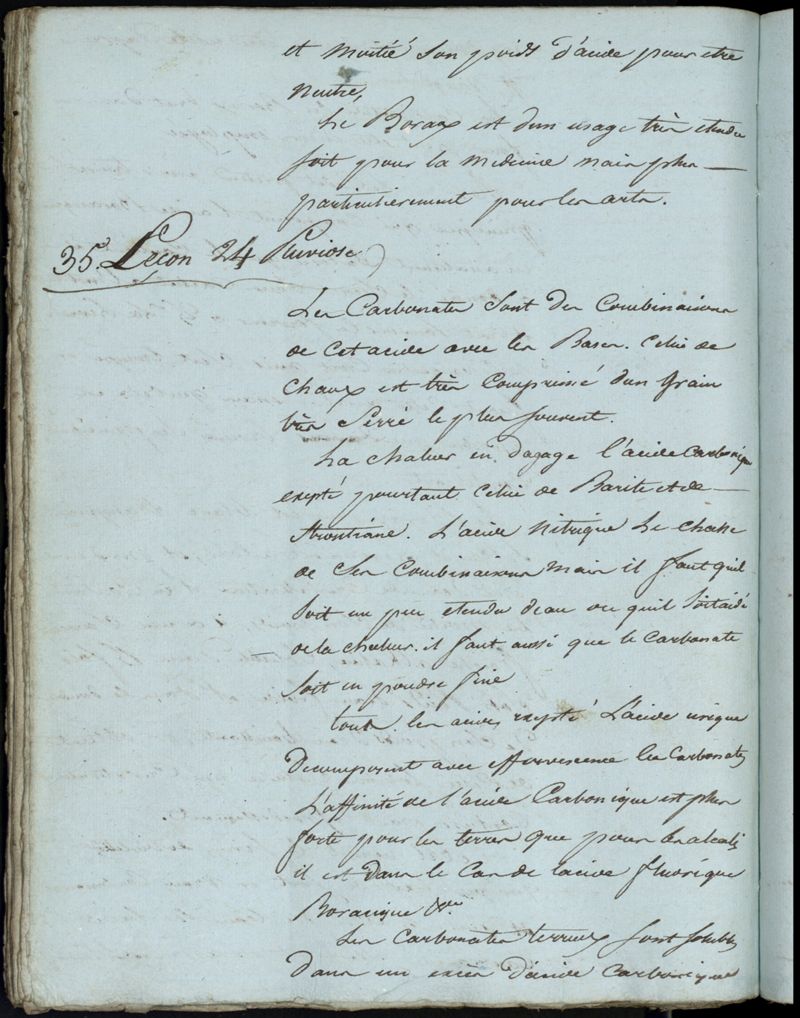 et moitié son poids d'acide pour etre
neutre,
Le Borax est dun usage très etendu
soit pour la medecine mais plus
particulierement pour les arts.
35e Leçon 24 Pluviose
Les Carbonates sont des Combinaisons
de cet acide avec les Bases. Celui de
chaux est très Comprimé dun grain
très Serré le plus souvent.
La chaleur en dagage l'acide Carbonique
exepté pourtant celui de Barite et de
strontiane. L'acide nitrique le chasse
de ses Combinaisons mais il faut quil
soit un peu etendu deau ou quil soit aidé
de la chaleur. il faut aussi que le Carbonate
soit en poudre fine
tous les acides exepté L'acide urique
Decomposent avec effervescence les Carbonates
L'affinité de l'acide Carbonique est plus
forte pour les terres que pour les alcalis
il est dans le Cas de lacide fluorique
Boracique &ca
Les Carbonates terreux sont solubles
dans un exès d'acide Carbonique